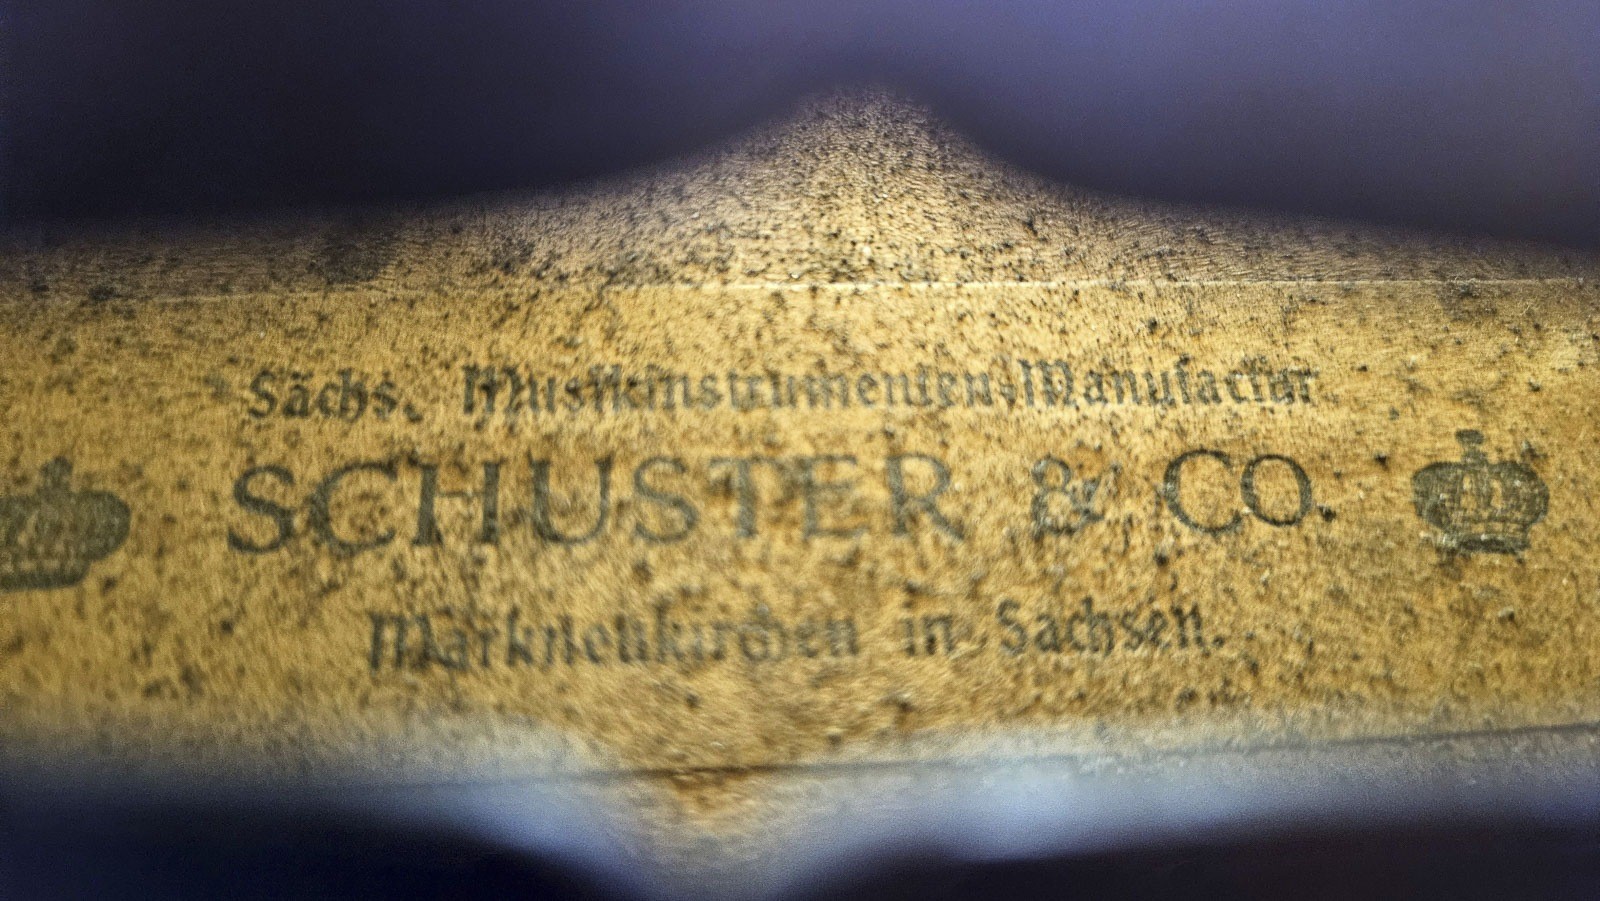 Sächs. Musikinstrumenten-Manufactur
SCHUSTER & CO.
Markneukirchen in Sachsen.